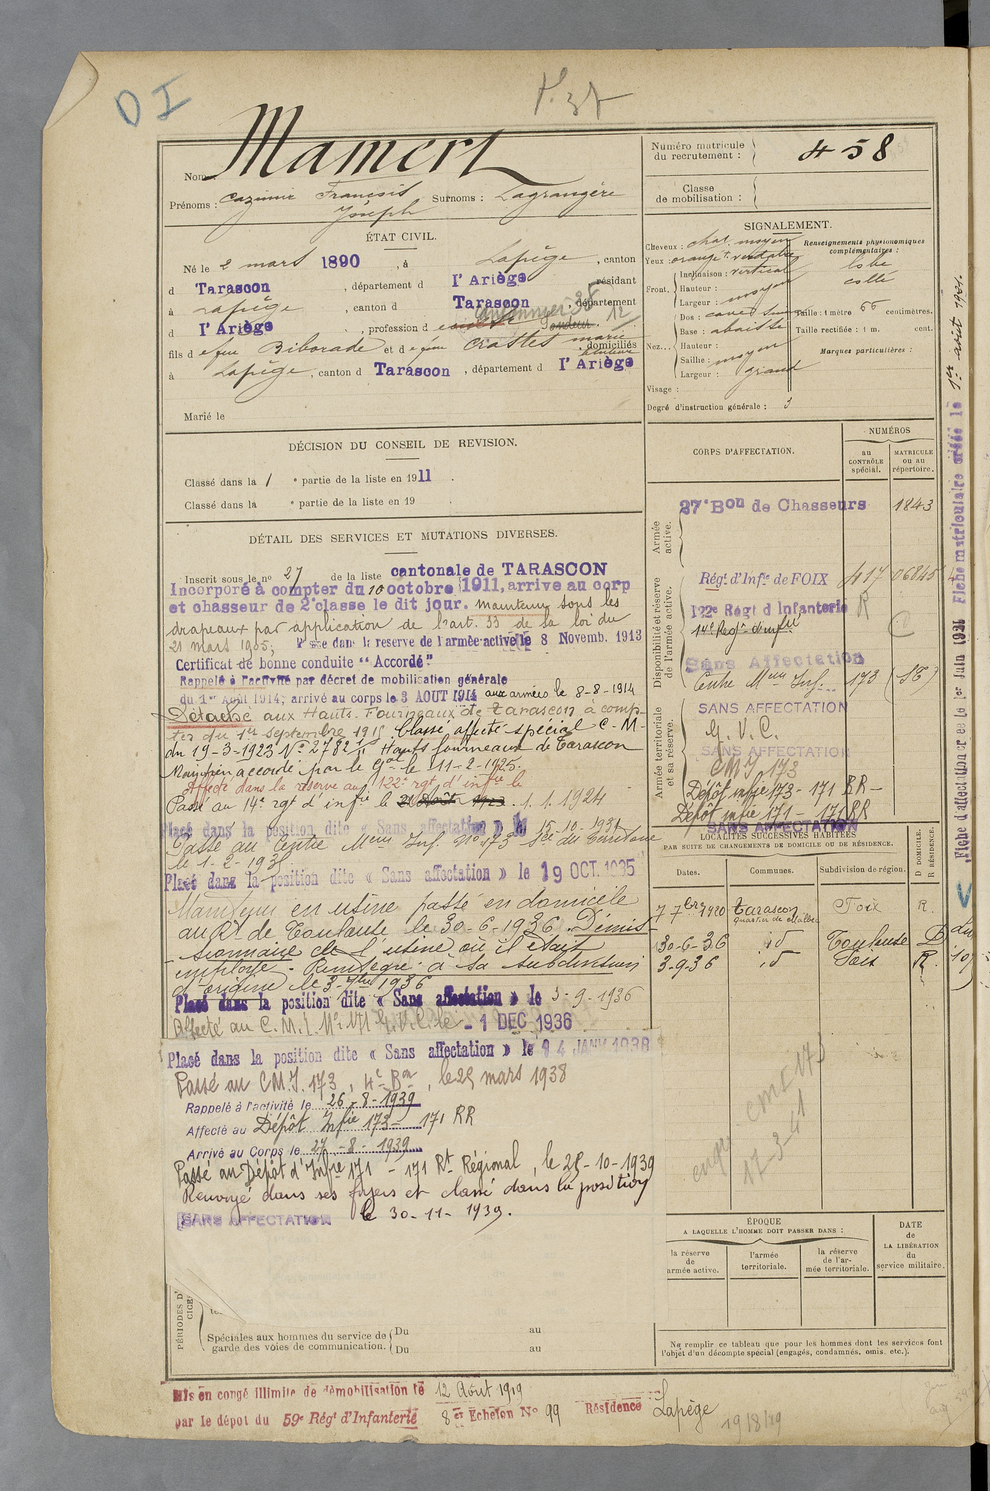 DI
P. 38
Nom : Mamert
Prénoms : Cazimir François Surnoms : Lagrangère
Joseph
Numéro matricule
du recrutement : 458
Classe
de mobilisation :
ÉTAT CIVIL.
Né le 2 mars 1890, à Lapège, canton
d Tarascon, département d l'Ariège, résidant
à Lapège, canton d Tarascon, département
d l'Ariège, profession d
fils d e feu Riborade et d e feue Crastes marie domiciliés
à Lapège, canton d Tarascon, département d l'Ariège
Marié le
SIGNALEMENT.
Cheveux : chat. moyen
Yeux : orangé t. verdâtre
Front. Inclinaison : vertical
Hauteur :
Largeur : moyen
Nez... Dos : cave
Base : abaissée
Hauteur :
Saillie : moyen
Largeur : grand
Visage :
Degré d'instruction générale : 3
Renseignements physionomiques
complémentaires :
lobe
collé
Taille : 1 mètre 66 centimètres.
Taille rectifiée : 1 m. cent.
Marques particulières :
DÉCISION DU CONSEIL DE REVISION.
Classé dans la 1 e partie de la liste en 1911.
Classé dans la e partie de la liste en 19
DÉTAIL DES SERVICES ET MUTATIONS DIVERSES.
Inscrit sous le n° 27 de la liste cantonale de TARASCON
Incorporé à compter du 10 octobre 1911, arrive au corp
et chasseur de 2e classe le dit jour. Maintenu sous les
drapeaux par application de l'art. 33 de la loi du
21 mars 1905; Passe dans la reserve de l'armée active le 8 Novemb. 1913
Certificat de bonne conduite "Accordé"
Rappelé à l'activité par décret de mobilisation générale
du 1er Août 1914; arrivé au corps le 3 AOUT 1914 aux armées le 8-8-1914
Détaché aux Hauts-Fourneaux de Tarascon à comp-
ter du 1er septembre 1915. Classé affecté spécial C.M.
du 19-3-1923 N° 2782 Hauts fourneaux de Tarascon
Maintien accordé par le Gal le 11-2-1925.
Affecté dans la réserve au 122e rgt d'infie le
Passé au 14e rgt d'infie le 1.1.1924
Placé dans la position dite « Sans affectation » le 15-10-1931
Passé au Centre Mon Inf. N° 173
le 1-2-193
Placé dans la position dite « Sans affectation » le 19 OCT. 1935
Maintenu en usine passé en domicile
au Rt de Toulouse le 30-6-1936 Démis-
sionnaire de l'usine où il était
employé. Réintégré à sa subdivision
d'origine le 3-7bre 1936
Placé dans la position dite « Sans affectation » le 3-9-1936
Affecté au C.M.I. N° 171 G.V.C. le - 1 DEC 1936
Placé dans la position dite « Sans affectation » le 14 JANV 1938
Passé au CMI. 173, 4e Bon, le 25 mars 1938
Rappelé à l'activité le 26-8-1939
Affecté au Dépôt Infie 173 - 171 RR
Arrivé au Corps le 27-8-1939
Passé au Dépôt d'Infie 171 - 171 Rt Régional, le 28-10-1939
Renvoyé dans ses foyers et classé dans la position
SANS AFFECTATION le 30-11-1939.
PÉRIODES D'
Spéciales aux hommes du service de
garde des voies de communication.
Du au
Du au
CORPS D'AFFECTATION.
NUMÉROS
au
CONTRÔLE
spécial.
MATRICULE
ou au
répertoire.
Armée
active.
27e Bon de Chasseurs 1843
Disponibilité et réserve
de l'armée active.
Régt d'Infie de FOIX 417 06845
122e Régt d'Infanterie R
14e Régt d'infie
Sans Affectation
Centre Mon Inf. 173
Armée territoriale
et sa réserve.
SANS AFFECTATION
G.V.C.
SANS AFFECTATION
CMI 173
Dépôt infie 173 - 171 RR -
Dépôt infie 171 - 171 RR
SANS AFFECTATION
LOCALITÉS SUCCESSIVES HABITÉES
PAR SUITE DE CHANGEMENTS DE DOMICILE OU DE RÉSIDENCE.
Dates. Communes. Subdivision de région. D DOMICILE. R RÉSIDENCE.
7 7bre 1920 Tarascon Foix R.
30-6-36 id Toulouse D
3-9-36 id Foix R.
CMI 173
17-3-41
ÉPOQUE
A LAQUELLE L'HOMME DOIT PASSER DANS :
la réserve
de
armée active.
l'armée
territoriale.
la réserve
de l'ar-
mée territoriale.
DATE
de
LA LIBÉRATION
du
service militaire.
Ne remplir ce tableau que pour les hommes dont les services font
l'objet d'un décompte spécial (engagés, condamnés, omis, etc.).
Fiche matriculaire créée le 1er août 1921.
Fiche d'affectation créée le 1er Juin 1921
Mis en congé illimité de démobilisation le 12 Août 1919
par le dépôt du 59e Régt d'Infanterie 8e Echelon N° 99 Résidence Lapège
19/8/19